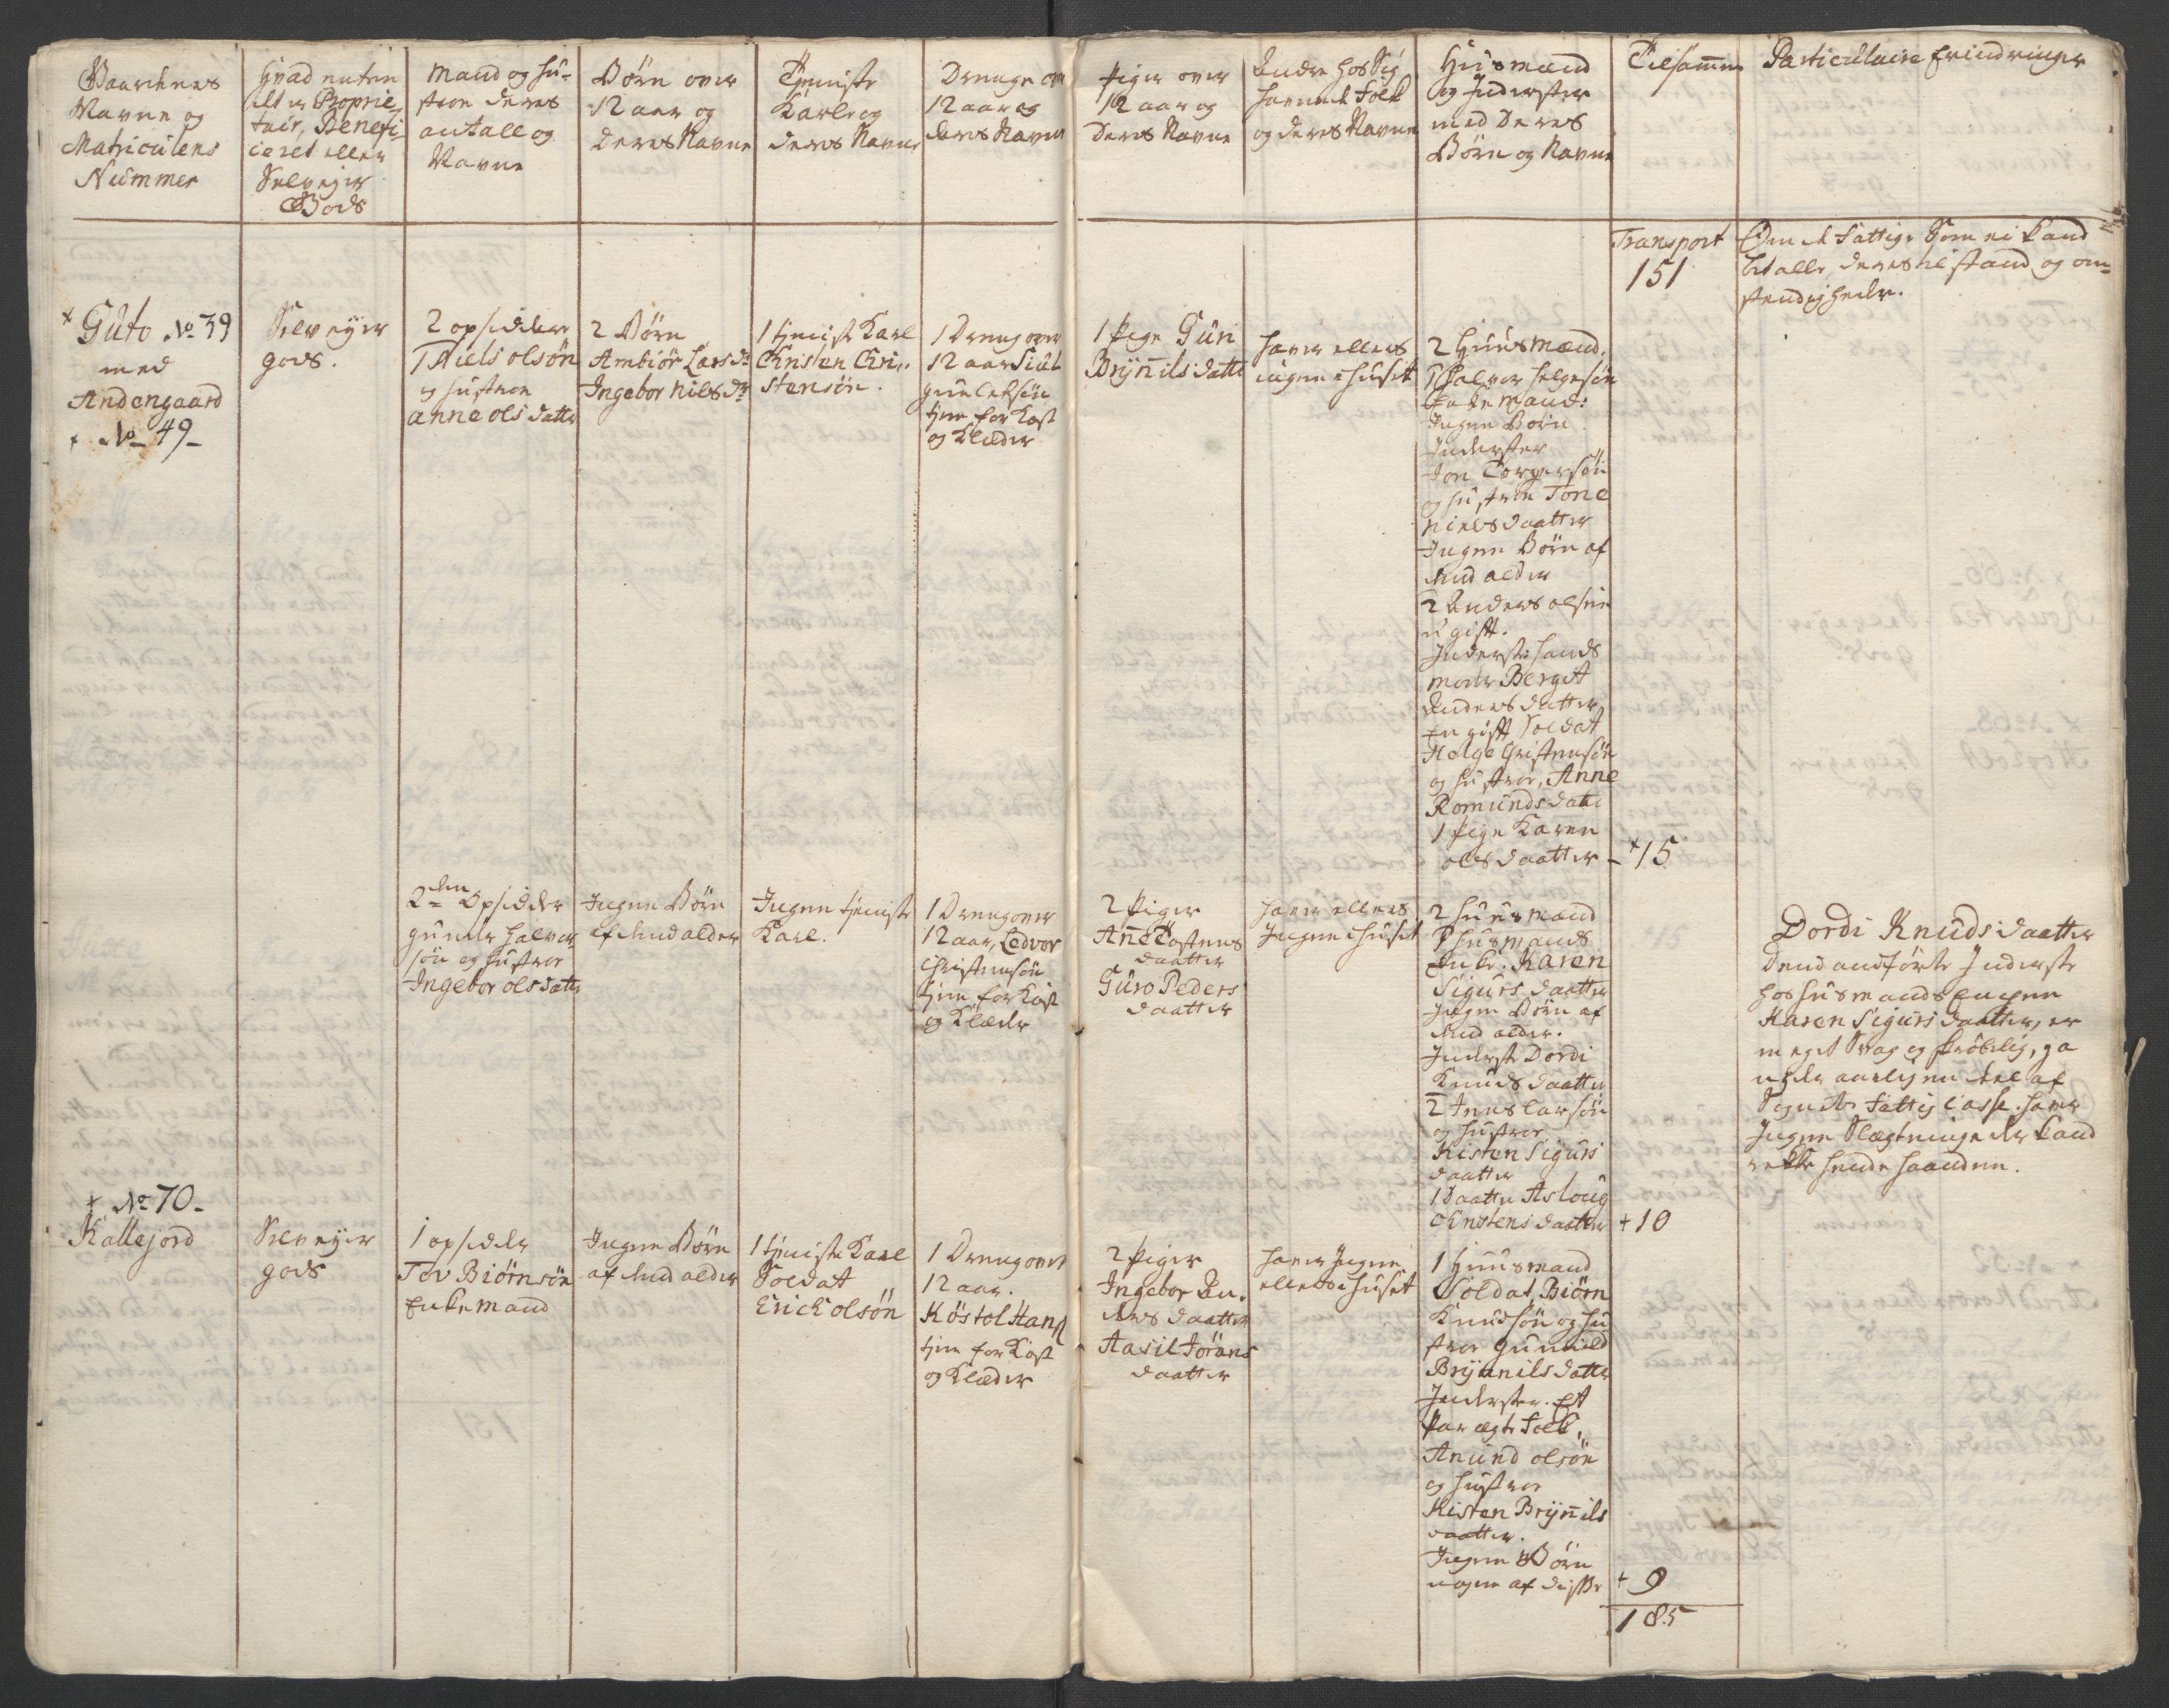 Gaardenes
Navne og
Matriculens
Nummer
Hvad enten
det er Proprie-
tair, Benefi-
ceret eller
Selvejer
Gods
Mand og Hu-
stroe deres
antall og
Navne
Børn over
12 aar og
Deres Navne
Tieniste
Karle og
deres Navne
Drenge over
12 aar og
deres Navne
Piger over
12 aar og
Deres Navne
Andre hos sig
havende Folk
og deres Navne
Huusmænd
og Inderster
med Deres
Børn og Navne
Tilsammen
Particulaire Erindringer
Transport
151
Om de Fattige Som ei kand
betalle, deres tilstand og om-
stendigheder.
+ Guto No 39
med
Andengaard
+ No 49
Selvejer
gods.
2 opsiddere
1 Niels olsøn
og Hustroe
anne ols datter
2 Børn
Ambiør Lars dr
Ingebor Niels dr
1 tieniste Karl
Christen Chri-
stensøn.
1 Dreng over
12 aar
gunleksøn
tien for Kost
og Klæder
1 Pige Guri
Brynnils datter
haver ellers
ingen i huset
2 Huusmænd.
1 Halvor Helgesøn
Enkemand:
Ingen Børn
Inderster
Jon Torgersøn
og hustroe Tone
Niels daatter
Ingen Børn af
dend alder
2 Anders olsøn
ugift.
Inderste hands
moder Bergit
Anders datter
En gift Soldat
Helge Christensøn
og hustroe, Anne
Romunds datter
1 Pige Karen
oles daatter – + 15
2den Opsidder
gunder halvor
søn og hustroe
Ingebor ols datter
Ingen Børn
af dend alder
Ingen tieniste
Karl.
1 Dreng over
12 aar, Ledvor
Christensøn
tien for Kost
og Klæder
2 Piger
Anne Tostens
daatter
Guro Peders
daatter
haver ellers
Ingen i huset
2 huusmænd
1 husmands
Enke. Karen
Sigurs daatter
Ingen Børn af
dend alder.
Inderste Dordi
Knuds daatter
2 Jens Larsøn
og hustroe
Kisten Sigurs
daatter
1 Daatter Asloug
Christens daatter + 10
Dordi Knuds daatter
Dend anførte Inderste
hos husmands Enken
Karen Sigurs daatter, er
meget Svag og skrøbelig,
nyder aarlig en deel af
Sognets Fattig Casse. haver
Ingen Slægtninge der kand
rekke hende haanden.
+ No 70
Kallejord
Selvejer
gods
1 opsidder
Tov Biørnsøn
Enkemand
Ingen Børn
af dend alder
1 tieniste Karl
Soldat
Erick olsøn
1 Dreng over
12 aar.
Køstol Hans
tien for Kost
og Klæder
2 Piger
Ingebor An-
ders daatter
Aasil Jørans
daatter
haver Ingen
ellers i huset
1 Huusmand
Soldat, Biørn
Knudsøn og hu
stroe gunnild
Brynnils datter
Inderster. Et
Par ægte Folk,
Anund olsøn
og hustroe
Kisten Brynnils
daatter.
Ingen Børn
nogen af disse + 9
185